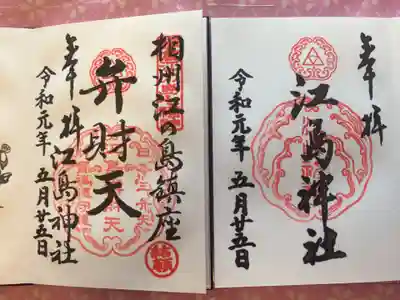 奉拝
江島神社
令和元年五月廿五日
相州江の島鎮座
弁財天
奉拝 江島神社
令和元年五月廿五日